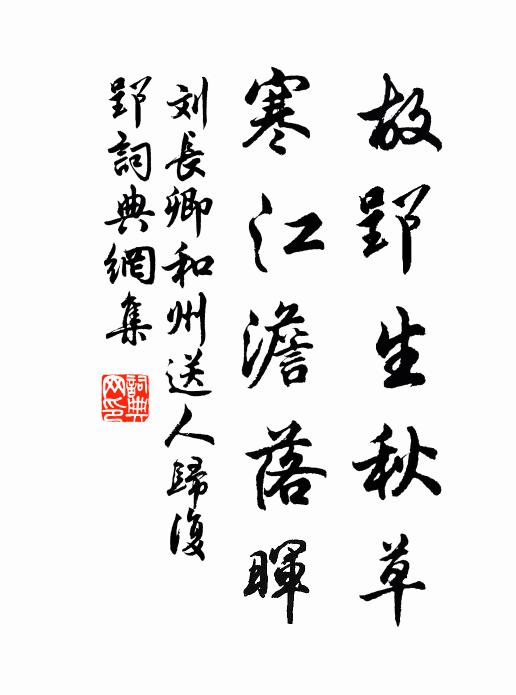 故郢生秋草
寒江澹落暉
刘長卿和州送人歸復
郢詞典網集
詞典网印